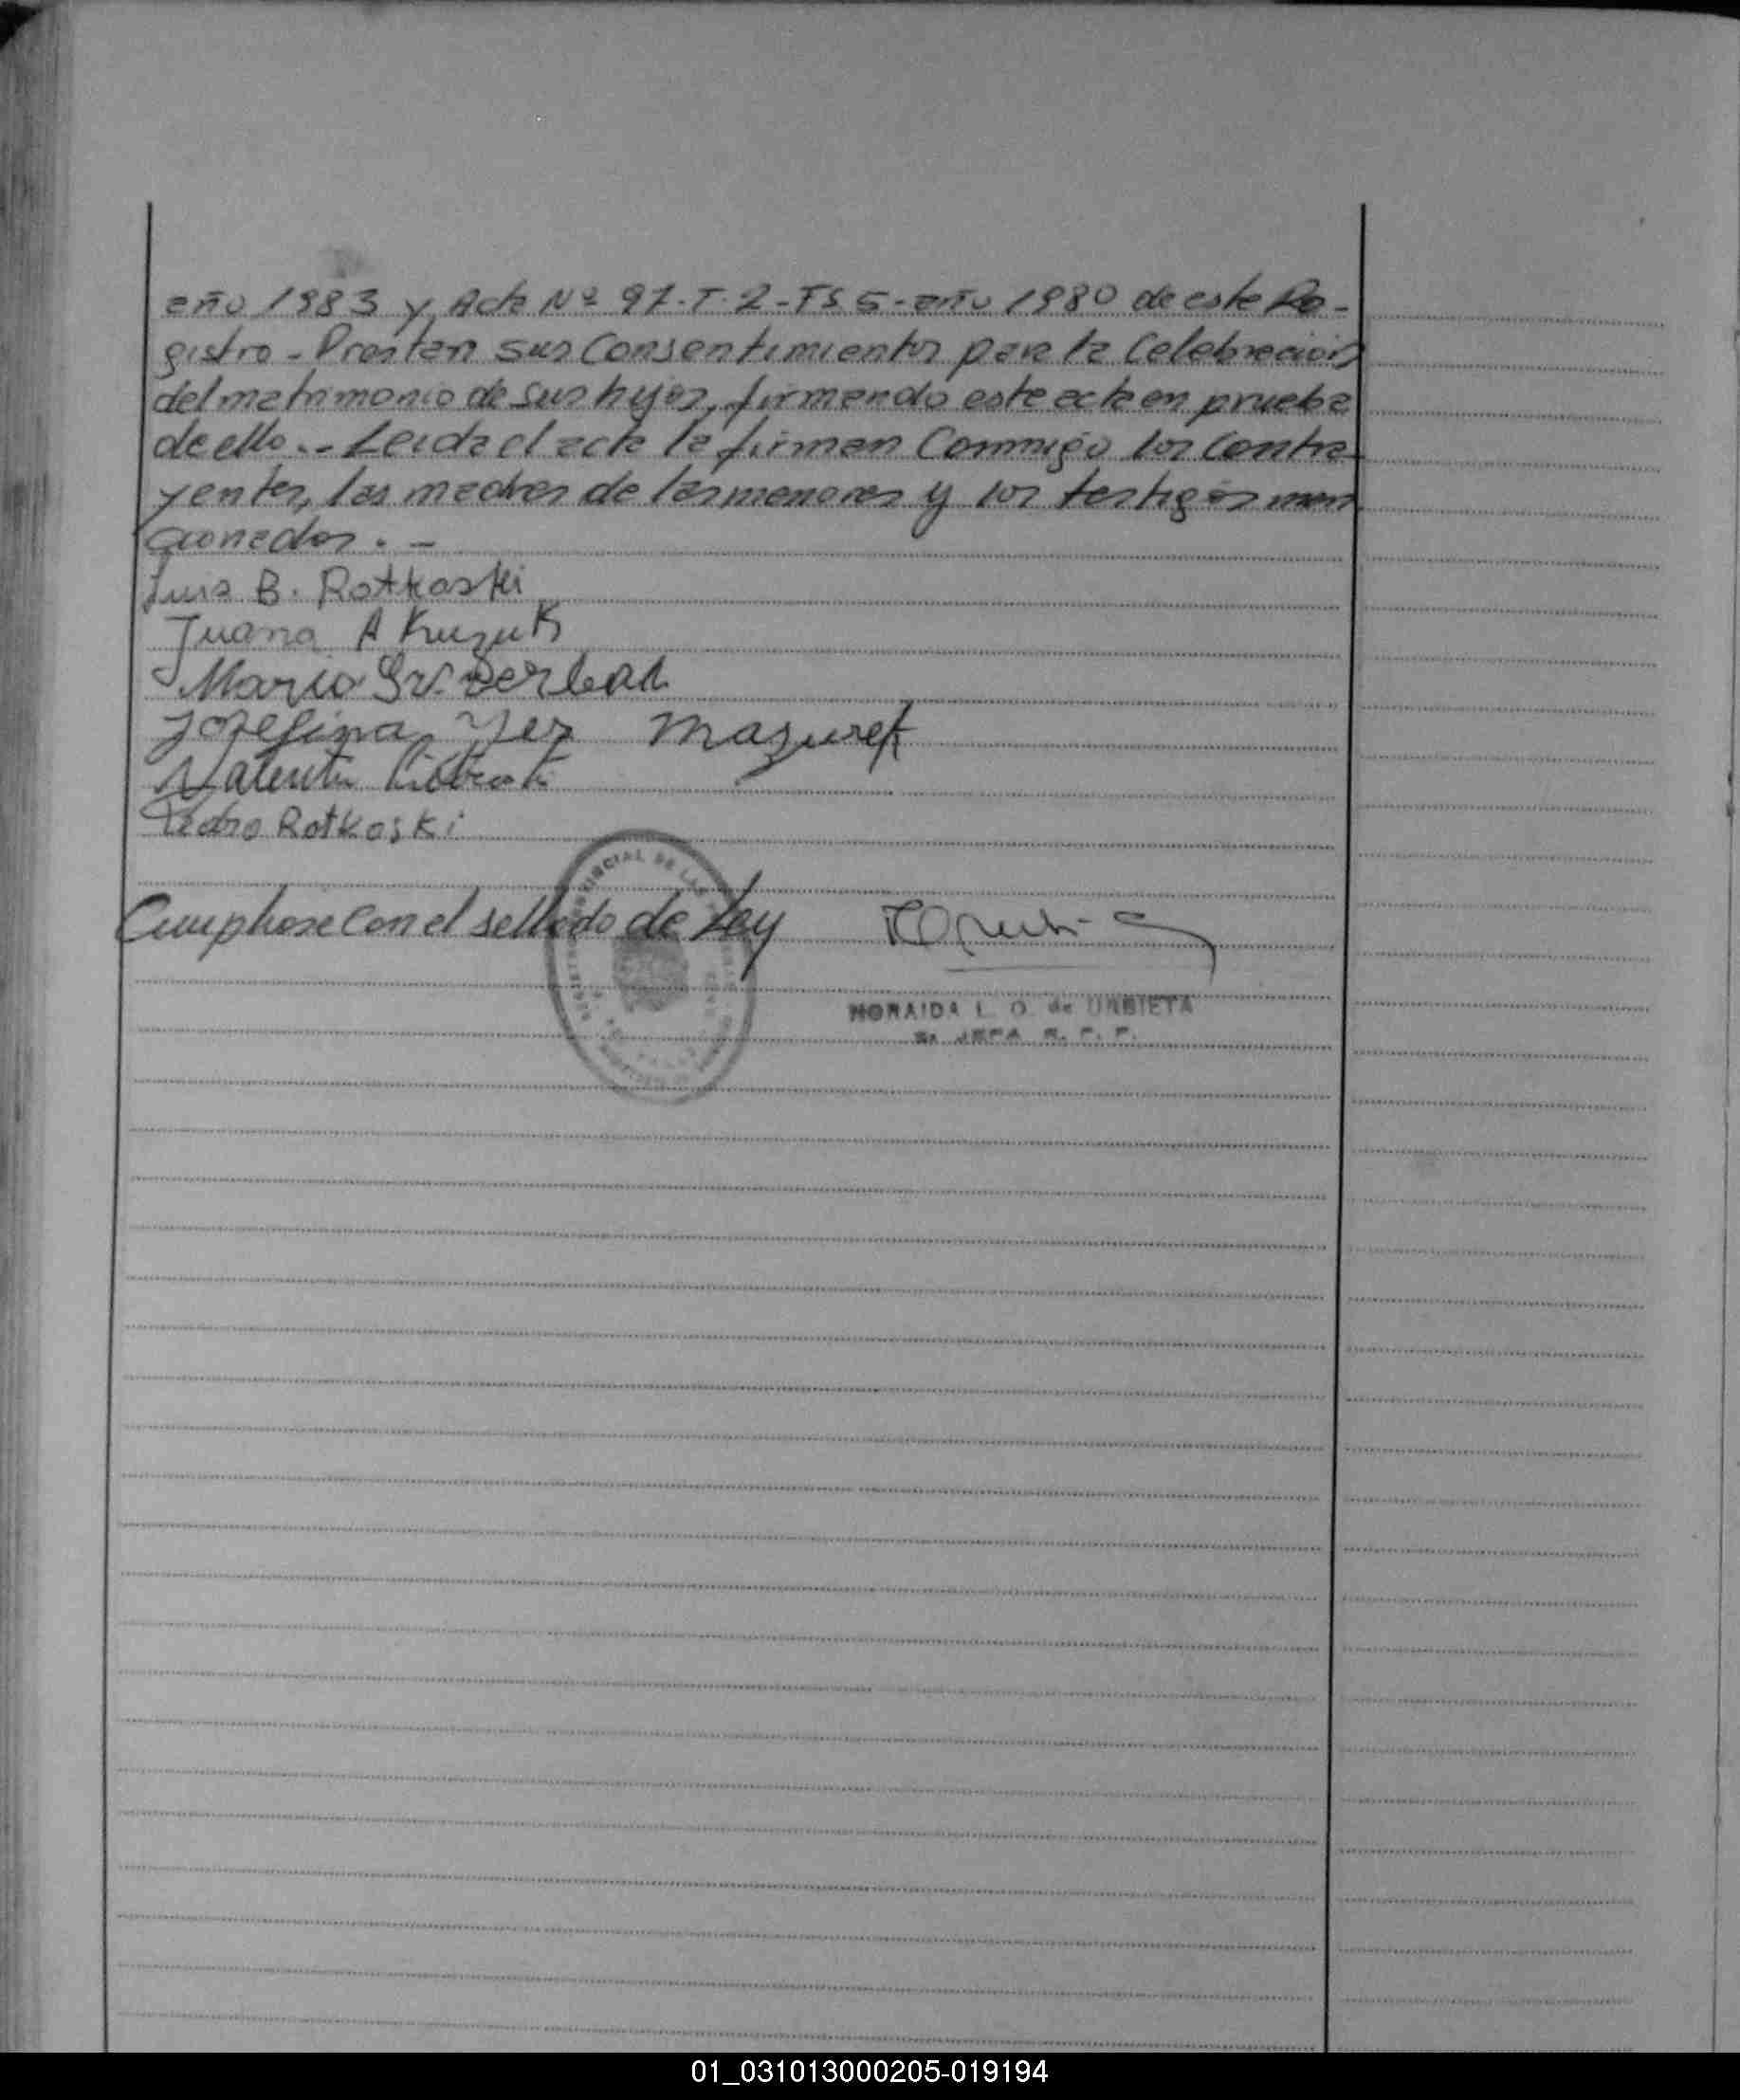 año 1983 y Acta Nº 97-T-2-Fs 5-año 1980 de este Re-
gistro - Prestan sus Consentimientos para la Celebración
del matrimonio de sus hijos, firmando este acta en prueba
de ello.- Leida el acta la firman Conmigo los Contra-
yentes, las madres de los menores y los testigos men
cionados. -
Luis B. Rotkoski
Juana A Kuzuk
Josefina Yer Mazurek
Valentin
Pedro Rotkoski
Cumplase con el sellado de Ley
NORAIDA L. O. de URBIETA
JEFA
01_031013000205-019194